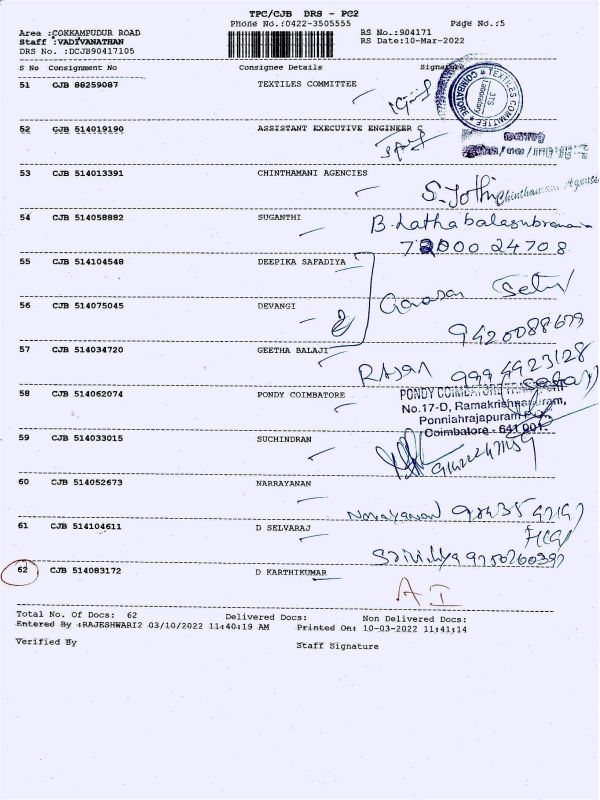 TPC/CJB DRS - PC2
Phone No.:0422-3505555 Page No.:5
Area :COKKAMPUDUR ROAD RS No.:904171
Staff :VADIVANATHAN RS Date:10-Mar-2022
DRS No. :DCJB90417105
S No Consignment No Consignee Details Signature
51 CJB 88259087 TEXTILES COMMITTEE
TEXTILES COMMITTEE COIMBATORE
Laboratory
52 CJB 514019190 ASSISTANT EXECUTIVE ENGINEER C
53 CJB 514013391 CHINTHAMANI AGENCIES
S. Jothi Chinthamani Agencies
54 CJB 514058882 SUGANTHI
B. Latha balasubramani
72000 24708
55 CJB 514104548 DEEPIKA SAFADIYA
56 CJB 514075045 DEVANGI
9420088679
57 CJB 514034720 GEETHA BALAJI
RAJAN 9994923128
58 CJB 514062074 PONDY COIMBATORE
PONDY COIMBATORE
No.17-D, Ramakrishnapuram,
Ponniahrajapuram
Coimbatore - 641 001.
59 CJB 514033015 SUCHINDRAN
60 CJB 514052673 NARRAYANAN
Narayanan
61 CJB 514104611 D SELVARAJ
Srividya 9750260397
62 CJB 514083172 D KARTHIKUMAR
A I
Total No. Of Docs: 62 Delivered Docs: Non Delivered Docs:
Entered By :RAJESHWARI2 03/10/2022 11:40:19 AM Printed On: 10-03-2022 11:41:14
Verified By Staff Signature